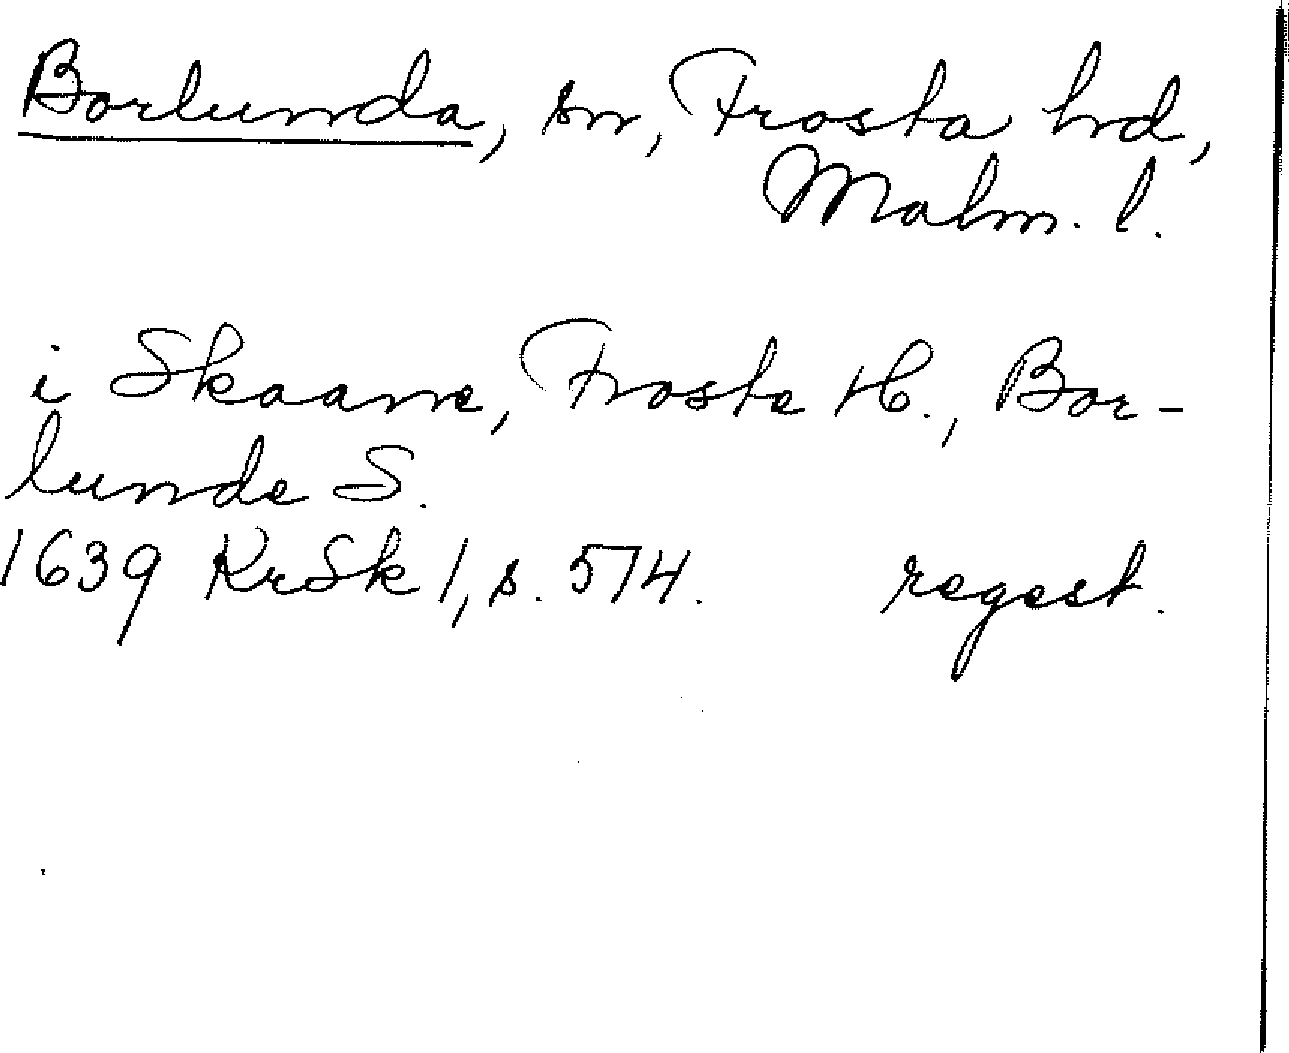 Borlunda, sn, Frosta hd,
Malm. l.
i Skaane, Froste H., Bor-
lunde S.
1639 KrSk 1, s. 574. regest.